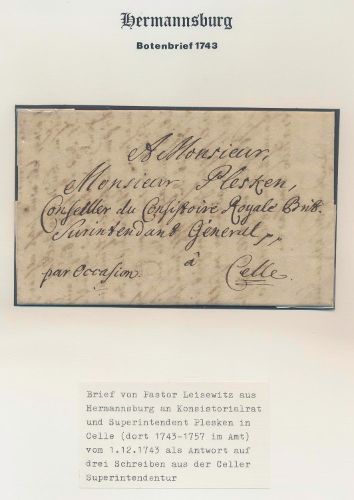 Hermannsburg
Botenbrief 1743
A Monsieur,
Monsieur Plesken,
Conseiller du Consistoire Royale Britt.
Surintendant General,,
par Occasion.
à
Celle.
Brief von Pastor Leisewitz aus
Hermannsburg an Konsistorialrat
und Superintendent Plesken in
Celle (dort 1743-1757 im Amt)
vom 1.12.1743 als Antwort auf
drei Schreiben aus der Celler
Superintendentur